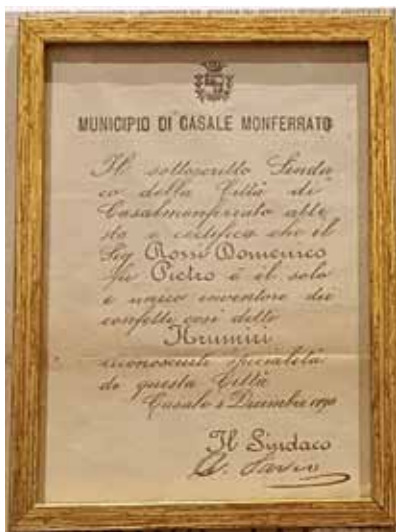 MUNICIPIO DI CASALE MONFERRATO
Il sottoscritto Sinda
co della Città di
Casalmonferrato atte
sta e certifica che il
Sig Rossi Domenico
fu Pietro è il solo
e unico inventore dei
confetti così detti
Krumiri
riconosciuti specialità
di questa Città
Casale Dicembre 1890
Il Sindaco